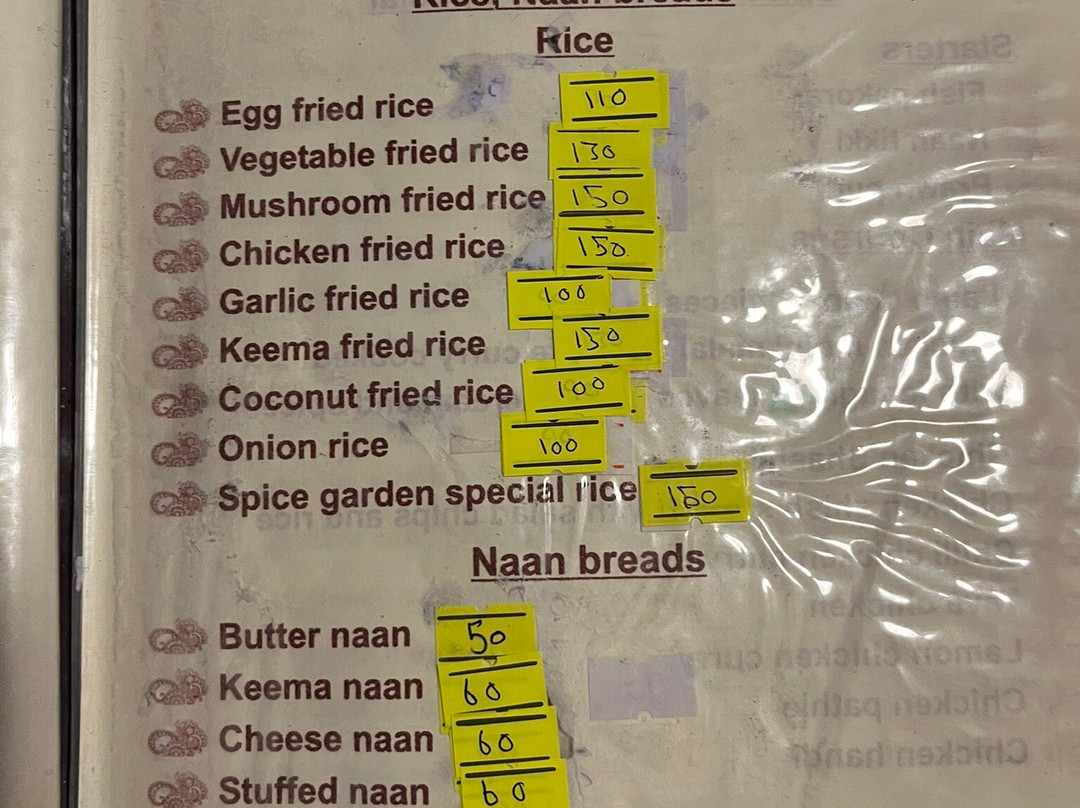 Rice, Naan breads
Rice
Egg fried rice 110
Vegetable fried rice 130
Mushroom fried rice 150
Chicken fried rice 150
Garlic fried rice 100
Keema fried rice 150
Coconut fried rice 100
Onion rice 100
Spice garden special rice 150
Naan breads
Butter naan 50
Keema naan 60
Cheese naan 60
Stuffed naan 60